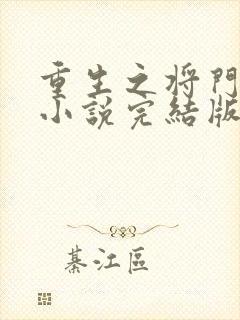 重生之将門
小說完結版
綦江區